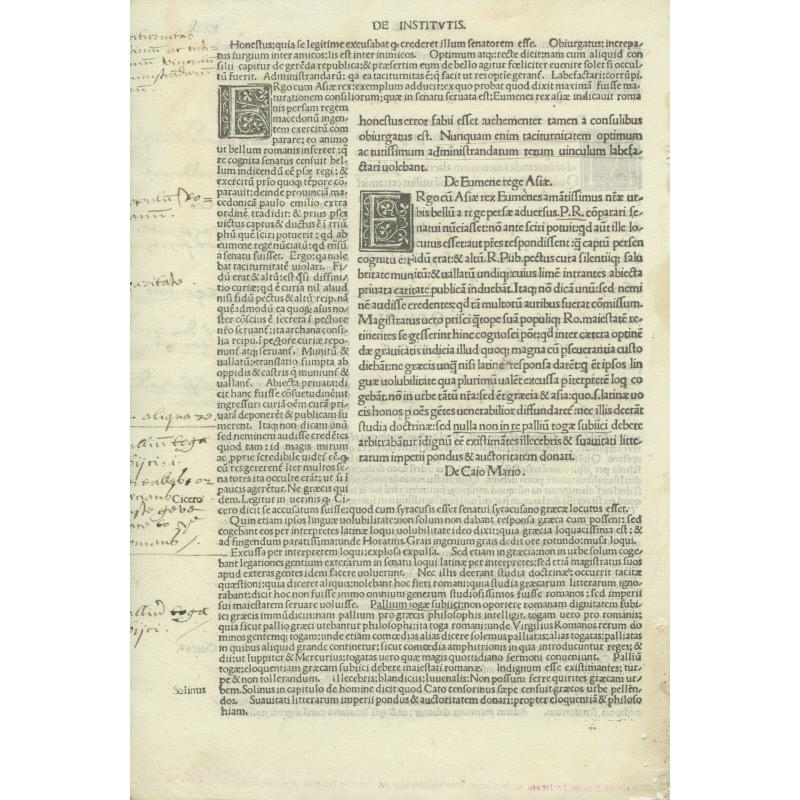 DE INSTITVTIS.
Honestus: quia se legitime excusabat q crederet illum senatorem esse. Obiurgatus: increpa-
tus surgium inter amicos: lis est inter inimicos. Optimum atq: recte dicit: nam cum aliquid con
silii capitur de gerēda republica: & præsertim eum de bello agitur fœliciter euenire solet si occul-
tū fuerit. Administrandarū: qa ea taciturnitas ē: q̄ facit ut res optie geranī. Labefactari: corrūpi.
ERgo cum Asiæ rex: exemplum adducit: ex quo probat quod dixit maximā fuisse ma-
turationem consiliorum: quæ in senatu seruata est: Eumenes rex asiæ indicauit roma
nis persam regem
macedonū ingen-
tem exercitū com
parare: eo animo
ut bellum romanis inferret: q
re cognita senatus censuit bel-
lum indicendū eē psæ regi: &
exercitū prio quoq; tēpore cō-
parauit: deinde prouinciā ma-
cedonicā paulo emilio extra
ordinē tradidit: & prius pses
uictus captus & ductus ē i triū
phū que sciri potuerit: qd ab
eumene rege nūciatū: qd cēsuū
a senatu fuisset. Ergo: qa nole
bat taciturnitatē uiolari. Fi-
dū erat & altū: est qsi diffini-
tio curiæ: qd ē curia nil aliud
nisi fidū pectus & altū reip. nā
quēadmodū ea quoq; aīus no-
ster cōscius ē secreta i pectore
nro seruant: ita archana consi-
lia reipu. i pectore curiæ repo-
nunt atq; seruant. Munitū &
uallatū: translatio sumpta ab
oppidis & castris q muniunt &
uallant. Abiecta priuata: di-
cit hanc fuisse cōsuetudinē ut
ingressuri curiā oēm curā pri-
uatā deponerēt & publicam su
merent. Itaq: non dicam unū
sed neminem audisse credētes
quod tam: id magis mirum
ac pprie scredibile uideē eē q
cū resgererenē iter multos se-
natores ita occulte erāt: ut si i
paucis agerētur. Ne græcis qui
dem. Legitur in uerinis q Ci-
honestus error fabii esset: uehementer tamen a consulibus
obiurgatus est. Nunquam enim taciturnitatem optimum
ac tutissimum administrandarum rerum uinculum labefa-
ctari uolebant.
De Eumene rege Asiæ.
ERgo cū Asiæ rex Eumēnes amātissimus nræ ur-
bis bellū a rege persæ aduersus. P. R. cōparari se-
natui nūciasset: nō ante sciri potuit: qd aut ille lo-
cutus esset: aut pres respondissent: q̄ capti persen
cognitū ē: Fidū erat: & altū. R. Pub. pectus cura silentiiq; salu
britate munitū: & uallatū undiq; cuius limē intrantes abiecta
priuata caritate publicā induebāt. Itaq; nō dicā unū: sed nemi
nē audisse credentes: qd tā multorū auribus fuerat cōmissum.
Magistratus uero prisci q̄tope suā populiq; Ro. maiestatē re-
tinentes se gesserint hinc cognosci pōt: qd inter cætera optinē
dæ grauitatis indicia illud quoq; magna cū pseuerantia custo
diebāt: ne græcis unq̄ nisi latine responsa darēt: q̄ ēt ipsos lin
guæ uolubilitate qua plurimū ualēt excussa p iterpretē loq co
gebāt: nō in urbe tātū nra: sed ēt græcia & asia: quo. s. latinæ uo
cis honos p oēs gētes uenerabilior diffundaret: nec illis deerāt
studia doctrinæ: sed nulla non in re palliū togæ subiici debere
arbitrabātur idignū eē existimātes illecebris & suauitati litte-
rarum imperii pondus & auctoritatem donari.
De Caio Mario.
cero dicit se accusatum fuisse: quod cum syracusis esset senatui syracusano græce locutus esset.
Quin etiam ipsos linguæ uolubilitate: non solum non dabant responsa græca cum possent: sed
cogebant eos per interpretes latine loqui uolubilitate ideo dixit: quia græcia loquacissima est: &
ad fingendum paratissima: unde Horatius. Grais ingenium grais dedit ore rotundo: musa loqui.
Excussa per interpretem loqui: explosa expulsa. Sed etiam in græcia: non in urbe solum coge-
bant legationes gentium exterarum in senatu loqui latine per interpretes: sed etiā magistratus suos
apud exteras gentes idem facere uoluerunt. Nec illis deerant studia doctrinæ: occurrit tacitæ
quæstioni: quia diceret aliquis: nolebant hoc fieri romani: quia studia græcarum litterarum igno-
rabant: dicit hoc non fuisse immo omnium generum studiosissimos fuisse romanos: sed imperii
sui maiestatem seruare uoluisse. Pallium togæ subiici: non oportere romanam dignitatem subi-
ci græcis immūdiciis: nam pallium pro græcis philosophis intelligit, togam uero pro romanis:
quia sicut pallio græci utebantur philosophi: ita toga romani: unde Virgilius Romanos rerum do
minos gentemq; togam: unde etiam comœdias alias dicere solemus palliatas: alias togatas: palliatas
in quibus aliquid grande continetur: sicut comœdia amphitrionis in qua introducuntur reges: &
dii: ut Iuppiter & Mercurius: togatas uero quæ magis quotidiano sermoni conueniunt. Palliū
togæ: eloquentiam græcam subiici debere maiestati romanæ. Indignum esse existimantes: tur-
pe & non tollerandum. illecebris: blandiciis: Iuuenalis: Non possum ferre quirites græcam ur-
bem. Solinus in capitulo de homine dicit quod Cato censorinus sæpe censuit græcos urbe pellēn-
dos. Suauitati litterarum imperii pondus & auctoritatem donari: propter eloquentiā & philoso
phiam.
Cicero
Solinus